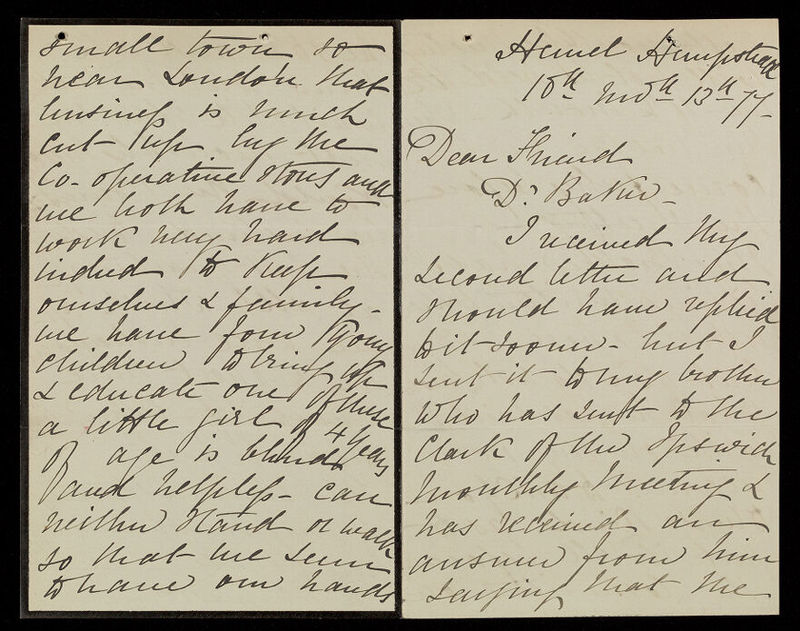 small town so
near London that
business is much
cut up by the
Co-operative Stores and
we both have to
work very hard
indeed to keep
ourselves & family -
we have four young
children to bring up
& educate one of these
a little girl of 4 years
of age is blind
and helpless - can
neither stand or walk
so that we seem
to have our hands
Hemel Hempstead
10th Moth 13th 77 -
Dear Friend
Dr Baker -
I received thy
second letter and
should have replied
to it sooner - but I
sent it to my brother
who has sent to the
Clark of the Ipswich
Monthly Meeting &
has received an
answer from him
saying that the